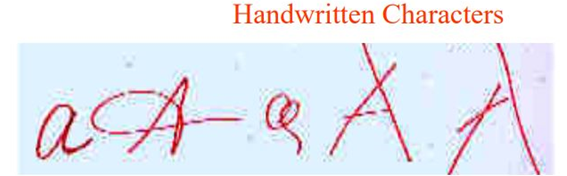 Handwritten Characters
a A a A A